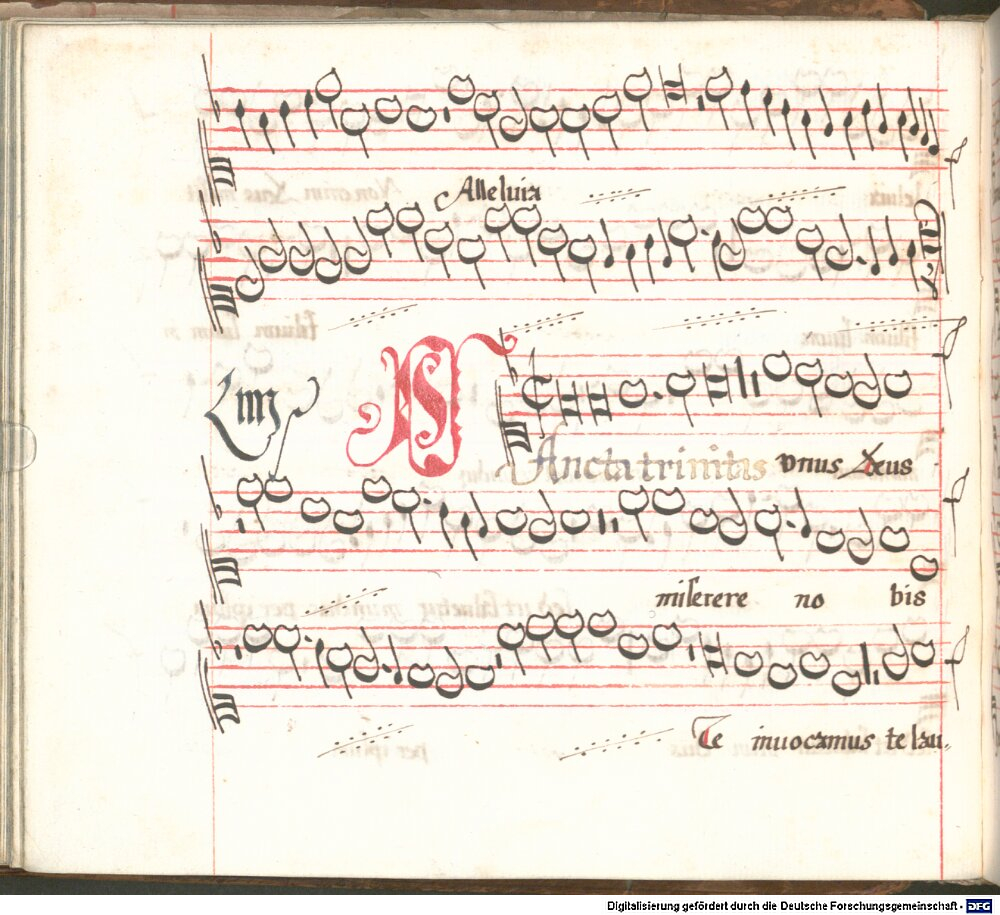 Alleluia
Liiij
SAncta trinitas vnus Deus
miserere no bis
Te inuocamus te lau„
Digitalisierung gefördert durch die Deutsche Forschungsgemeinschaft - DFG